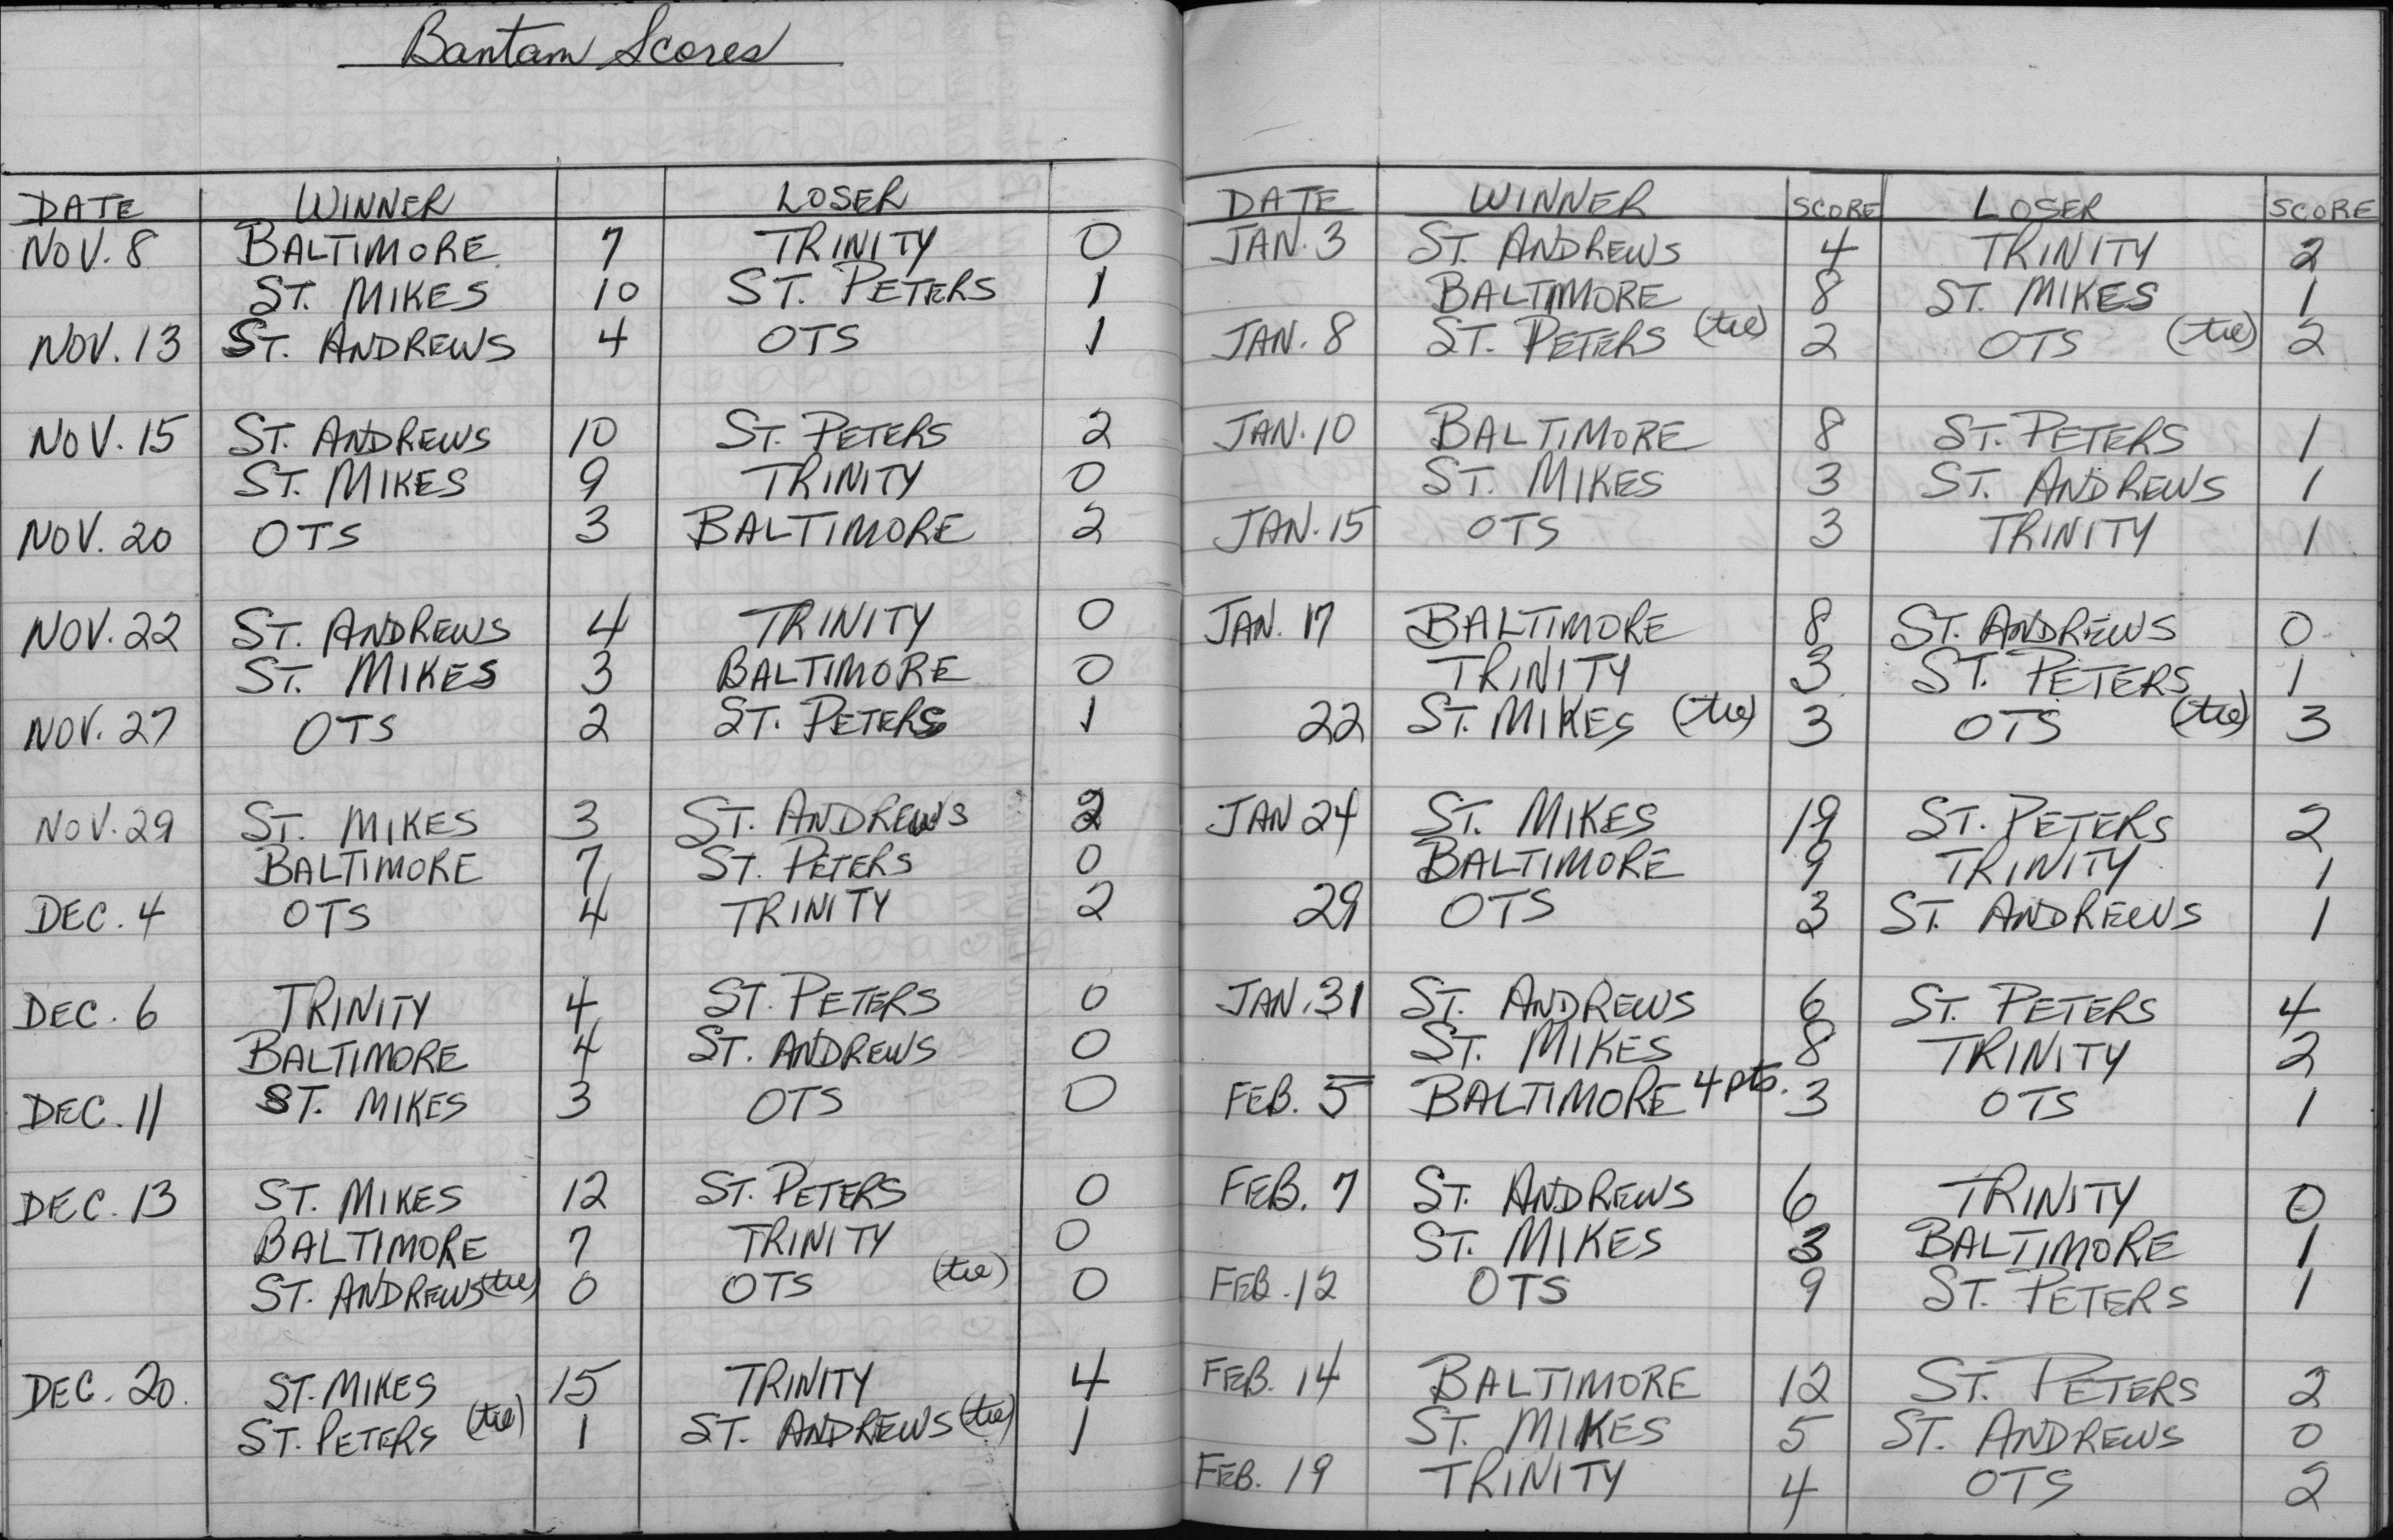 Bantam Scores
DATE WINNER LOSER
NOV. 8 BALTIMORE 7 TRINITY 0
ST. MIKES 10 ST. PETERS 1
NOV. 13 ST. ANDREWS 4 OTS 1
NOV. 15 ST. ANDREWS 10 ST. PETERS 2
ST. MIKES 9 TRINITY 0
NOV. 20 OTS 3 BALTIMORE 2
NOV. 22 ST. ANDREWS 4 TRINITY 0
ST. MIKES 3 BALTIMORE 0
NOV. 27 OTS 2 ST. PETERS 1
NOV. 29 ST. MIKES 3 ST. ANDREWS 2
BALTIMORE 7 ST. PETERS 0
DEC. 4 OTS 4 TRINITY 2
DEC. 6 TRINITY 4 ST. PETERS 0
BALTIMORE 4 ST. ANDREWS 0
DEC. 11 ST. MIKES 3 OTS 0
DEC. 13 ST. MIKES 12 ST. PETERS 0
BALTIMORE 7 TRINITY 0
ST. ANDREWS (tie) 0 OTS (tie) 0
DEC. 20. ST. MIKES 15 TRINITY 4
ST. PETERS (tie) 1 ST. ANDREWS (tie) 1
DATE WINNER SCORE LOSER SCORE
JAN. 3 ST. ANDREWS 4 TRINITY 2
BALTIMORE 8 ST. MIKES 1
JAN. 8 ST. PETERS (tie) 2 OTS (tie) 2
JAN. 10 BALTIMORE 8 ST. PETERS 1
ST. MIKES 3 ST. ANDREWS 1
JAN. 15 OTS 3 TRINITY 1
JAN. 17 BALTIMORE 8 ST. ANDREWS 0
TRINITY 3 ST. PETERS 1
22 ST. MIKES (tie) 3 OTS (tie) 3
JAN 24 ST. MIKES 19 ST. PETERS 2
BALTIMORE 9 TRINITY 1
29 OTS 3 ST. ANDREWS 1
JAN. 31 ST. ANDREWS 6 ST. PETERS 4
ST. MIKES 8 TRINITY 2
FEB. 5 BALTIMORE 4 pts. 3 OTS 1
FEB. 7 ST. ANDREWS 6 TRINITY 0
ST. MIKES 3 BALTIMORE 1
FEB. 12 OTS 9 ST. PETERS 1
FEB. 14 BALTIMORE 12 ST. PETERS 2
ST. MIKES 5 ST. ANDREWS 0
FEB. 19 TRINITY 4 OTS 2